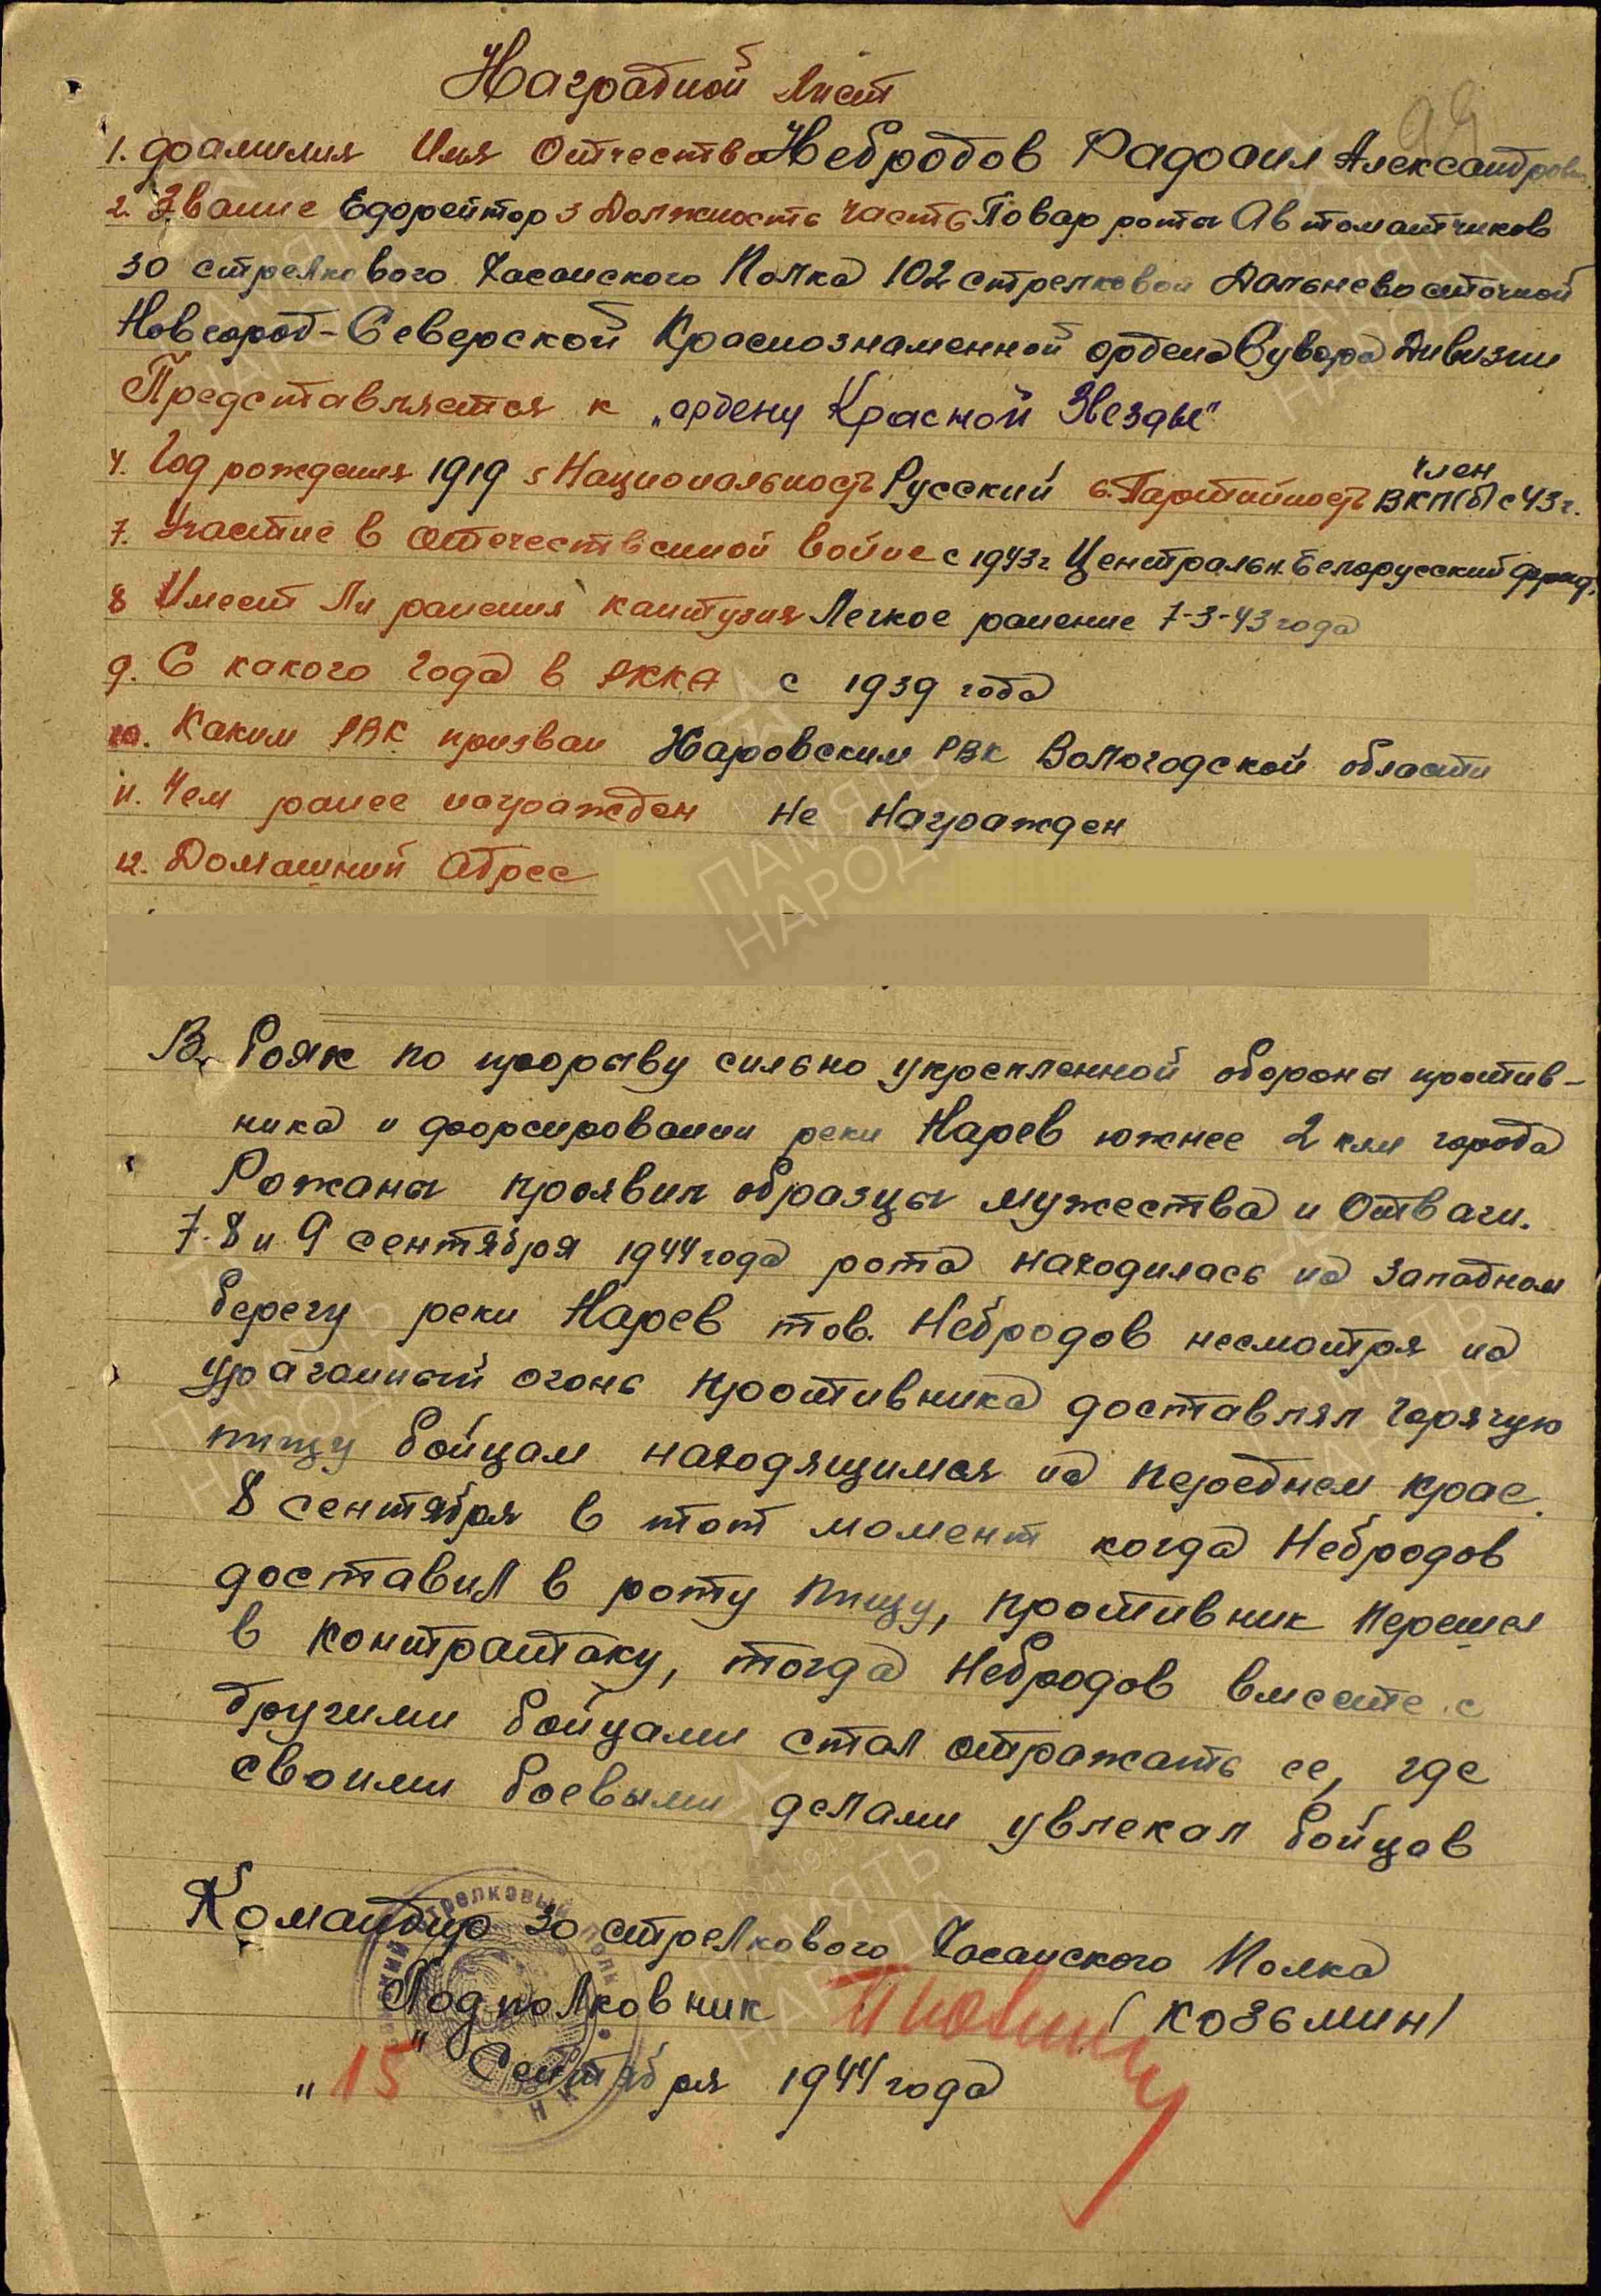 99
Наградной Лист
1. Фамилия Имя Отчество Небродов Рафоаил Александров
2. Звание Ефрейтор 3 Должность часть Повар роты Автоматчиков
30 стрелкового Хасанского Полка 102 стрелковой Дальневосточной
Новгород-Северской Краснознаменной ордена Сувора Дивизии
Представляется к „ордену Красной Звезды"
4. Год рождения 1919 5 Национальность Русский 6. Партийность член ВКП(б) с 43 г.
7. Участие в Отечественной войне с 1943 г Центральн. Белорусский фронт.
8 Имеет Ли ранения контузия Легкое ранение 7-3-43 года
9. С какого Года в РККА с 1939 года
10. Каким РВК призван Харовским РВК Вологодской области
11. Чем ранее награжден не награжден
12. Домашний Адрес
В боях по прорыву сильно укрепленной обороны против-
ника и форсировании реки Нарев южнее 2 клм города
Рожаны проявил образцы мужества и Отваги.
7. 8 и 9 сентября 1944 года рота находилась на западном
берегу реки Нарев тов. Небродов несмотря на
ураганный огонь противника доставлял горячую
пищу бойцам находящимся на переднем крае.
8 сентября в тот момент когда Небродов
доставил в роту пищу, противник перешел
в контратаку, тогда Небродов вместе с
другими бойцами стал отражать ее, где
своими боевыми делами увлекал бойцов
Командир 30 стрелкового Хасанского Полка
Подполковник (Козьмин)
„15" Сентября 1944 года
стрелковый полк
ПАМЯТЬ
НАРОДА